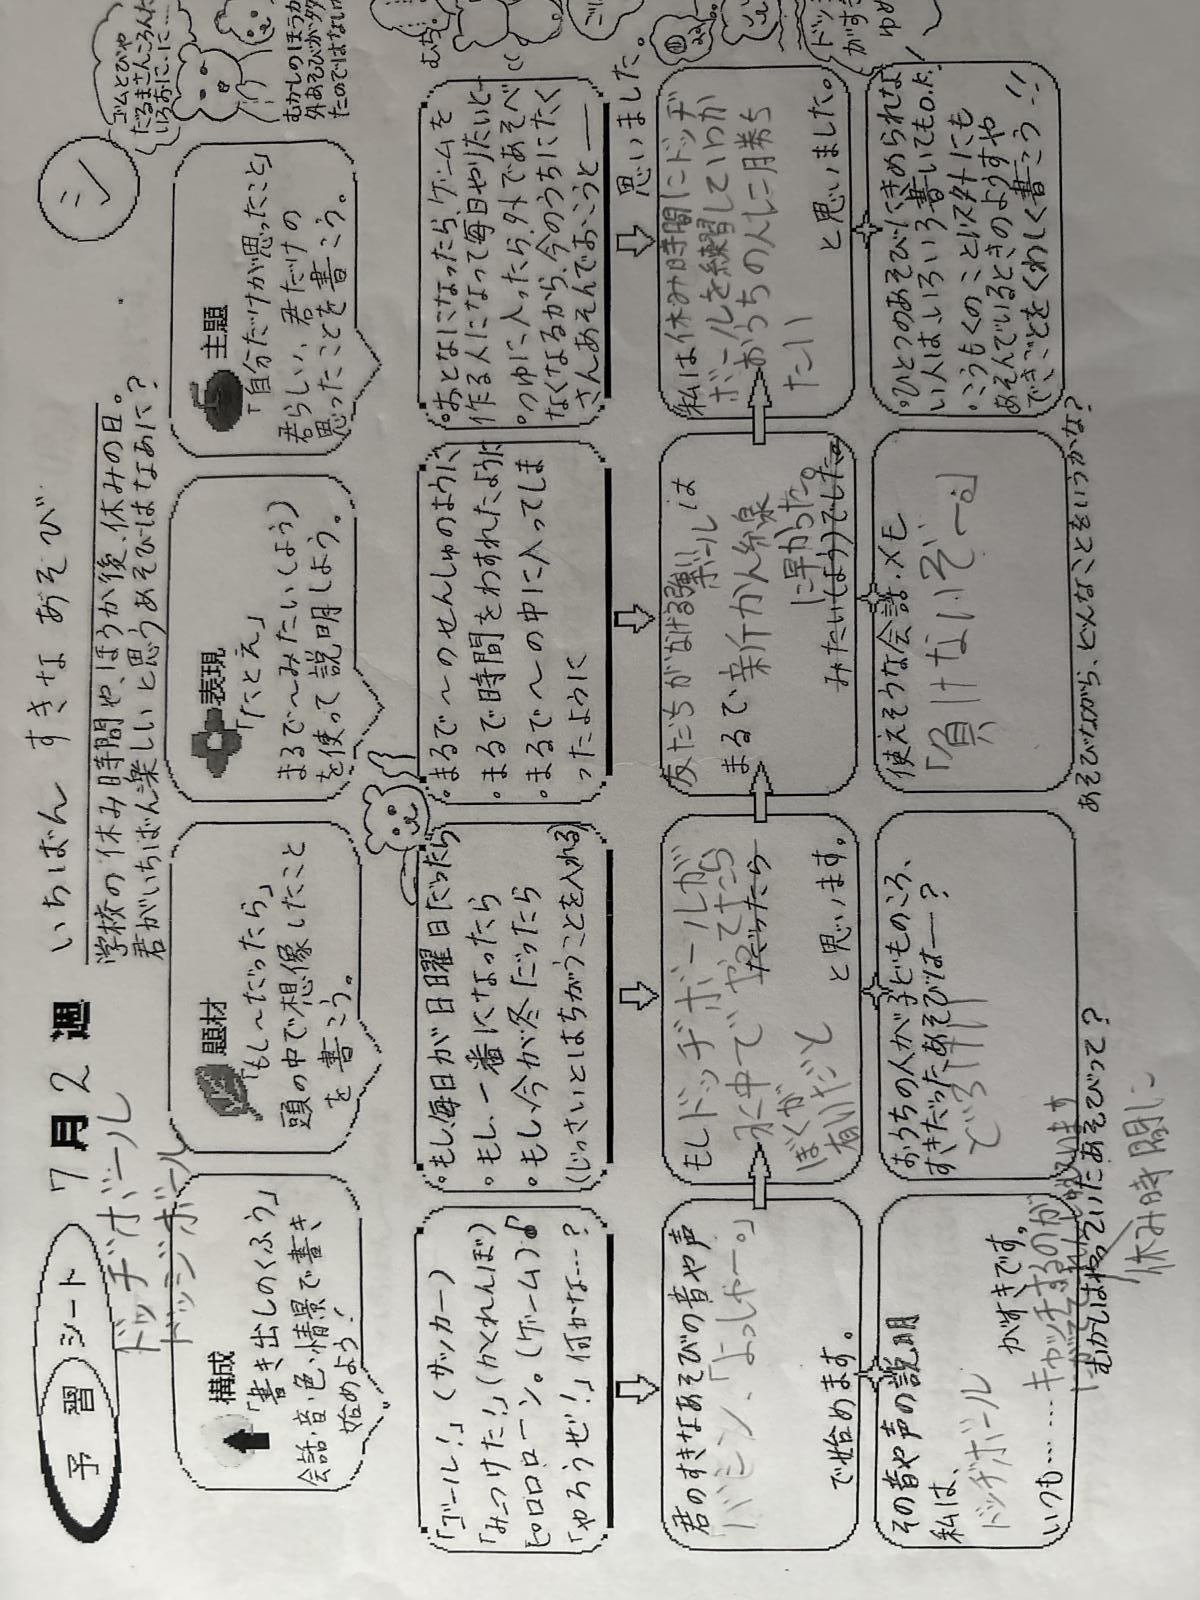 予習シート 7月2週 いちばん すきな あそび
シ
学校の休み時間や、ほうか後、休みの日。
君がいちばん楽しいと思うあそびはなあに?
ドッヂボール
ドッジボール
構成
「書き出しのくふう」
会話・音・色・情景で書き
始めよう!
題材
「もし〜だったら」
頭の中で想像したこと
を書こう。
表現
「たとえ」
まるで〜みたい(よう)
を使って説明しよう。
主題
「自分だけが思ったこと」
君らしい、君だけの
思ったことを書こう。
ゴムとびや
だるまさんころんだ
いろおに…に…
むかしのほうが
外あそびが多か
たのではないか
「ゴール!」(サッカー)
「みーつけた!」(かくれんぼ)
ピロロロローン。(ゲーム)♪
「やろうぜ!」何かな…?
。もし、毎日が日曜日だったら
。もし、一番になったら
。もし、今が冬だったら
(じっさいとはちがうことを入れる)
。まるで〜のせんしゅのように
。まるで時間をわすれたように
。まるで〜の中に入ってしま
ったように
。おとなになったら、ゲームを
作る人になって毎日やりたいと—
。つゆに入ったら、外であそべ
なくなるから、今のうちにたく
さんあそんでおこうと—
思いました。
君のすきなあそびの音や声
「バシン、「よっしゃー。」
で始めます。
もしドッヂボールが
水中でやってたら
だったら
ぼくが
有利だと
と思います。
友だちがなげる強いボールは
まるで新かん線
に早かった。
みたい(よう)でした。
私は休み時間にドッヂ
ボールを練習していつか
おうちの人に勝ち
たい
と思いました。
その音や声の説明
私は、
ドッヂボール
がすきです。
いつも……キャッチするのが
おうちの人が子どものころ、
すきだったあそびは—?
どろけい
むかしはやっていたあそびって?
休み時間に
使えそうな会話・メモ
「負けないぞー。」
あそびながら、どんなことをいうかな?
。ひとつのあそびにきめられな
い人は、いろいろ書いてもO.K.
。こうもくのこと以外にも
あそんでいるときのようすや
できごとをくわしく書こう…!!